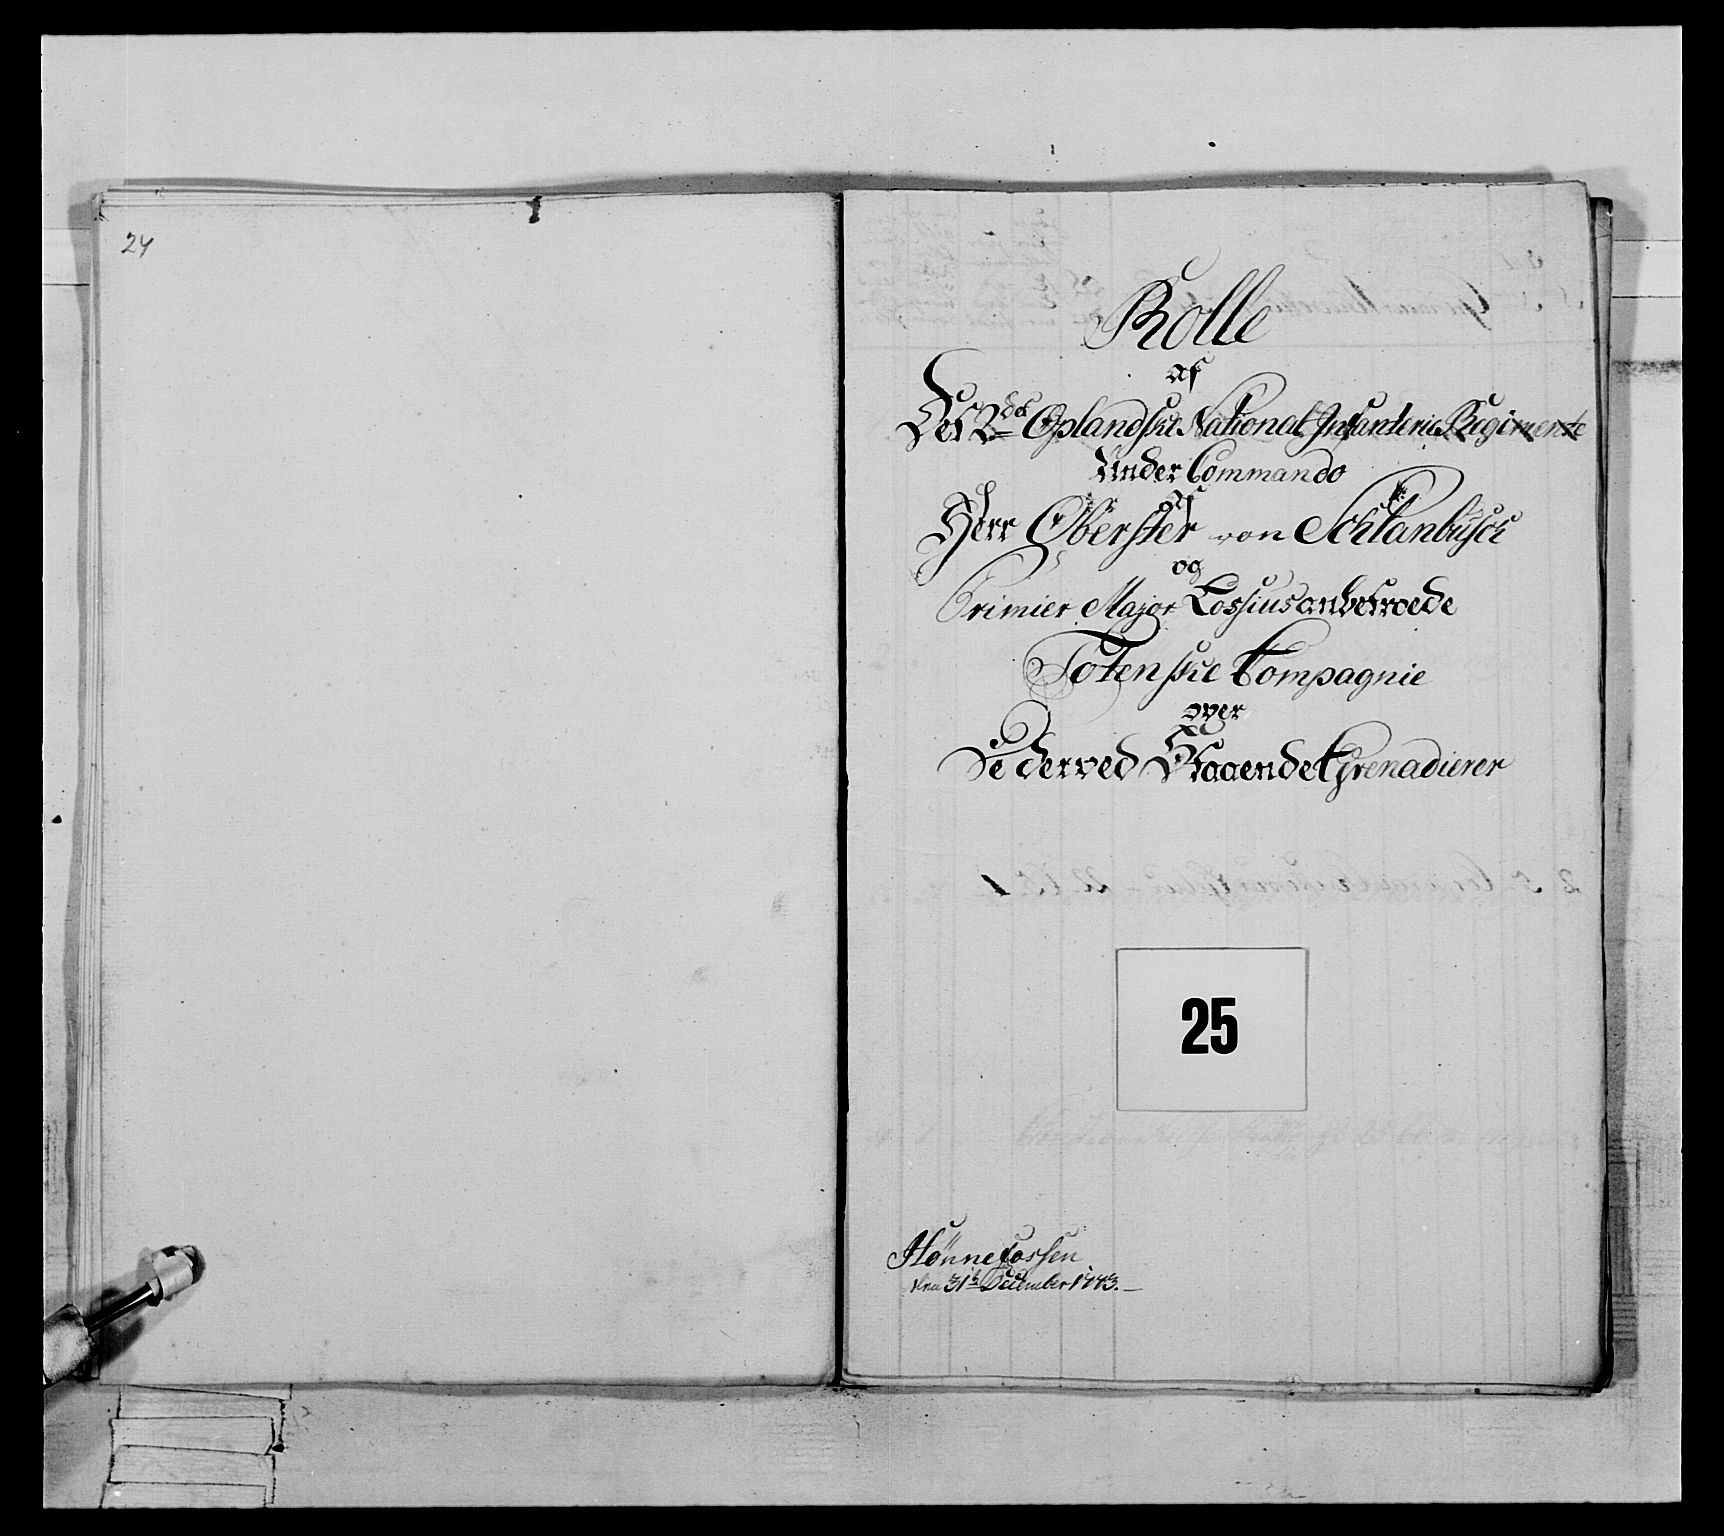 24
Rolle
af
Det 2det Oplandske National Infanterie Regimente
Under Commando
af
Herr Oberster von Schlanbusch
og
Primier Major Lossius anbetroede
Totenske Compagnie
over
De derved Staaende Grenadierer
25
Hönnefossen
den 31t December 1743.